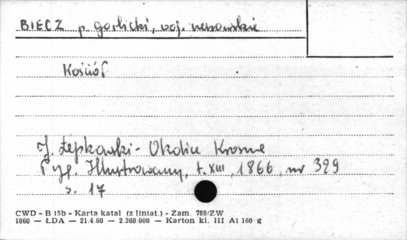 BIECZ p. gorlicki, woj. rzeszowskie
Kościół
J. Łepkowski - Okolice Krosna
Tyg. Illustrowany, t. XIII, 1866, nr 329
s. 17
CWD - B 15b - Karta katal (z liniat.) - Zam. 788/ZW
1060 — ŁDA — 21.4.60 — 2.360.000 — Karton kl. III A1 160 g